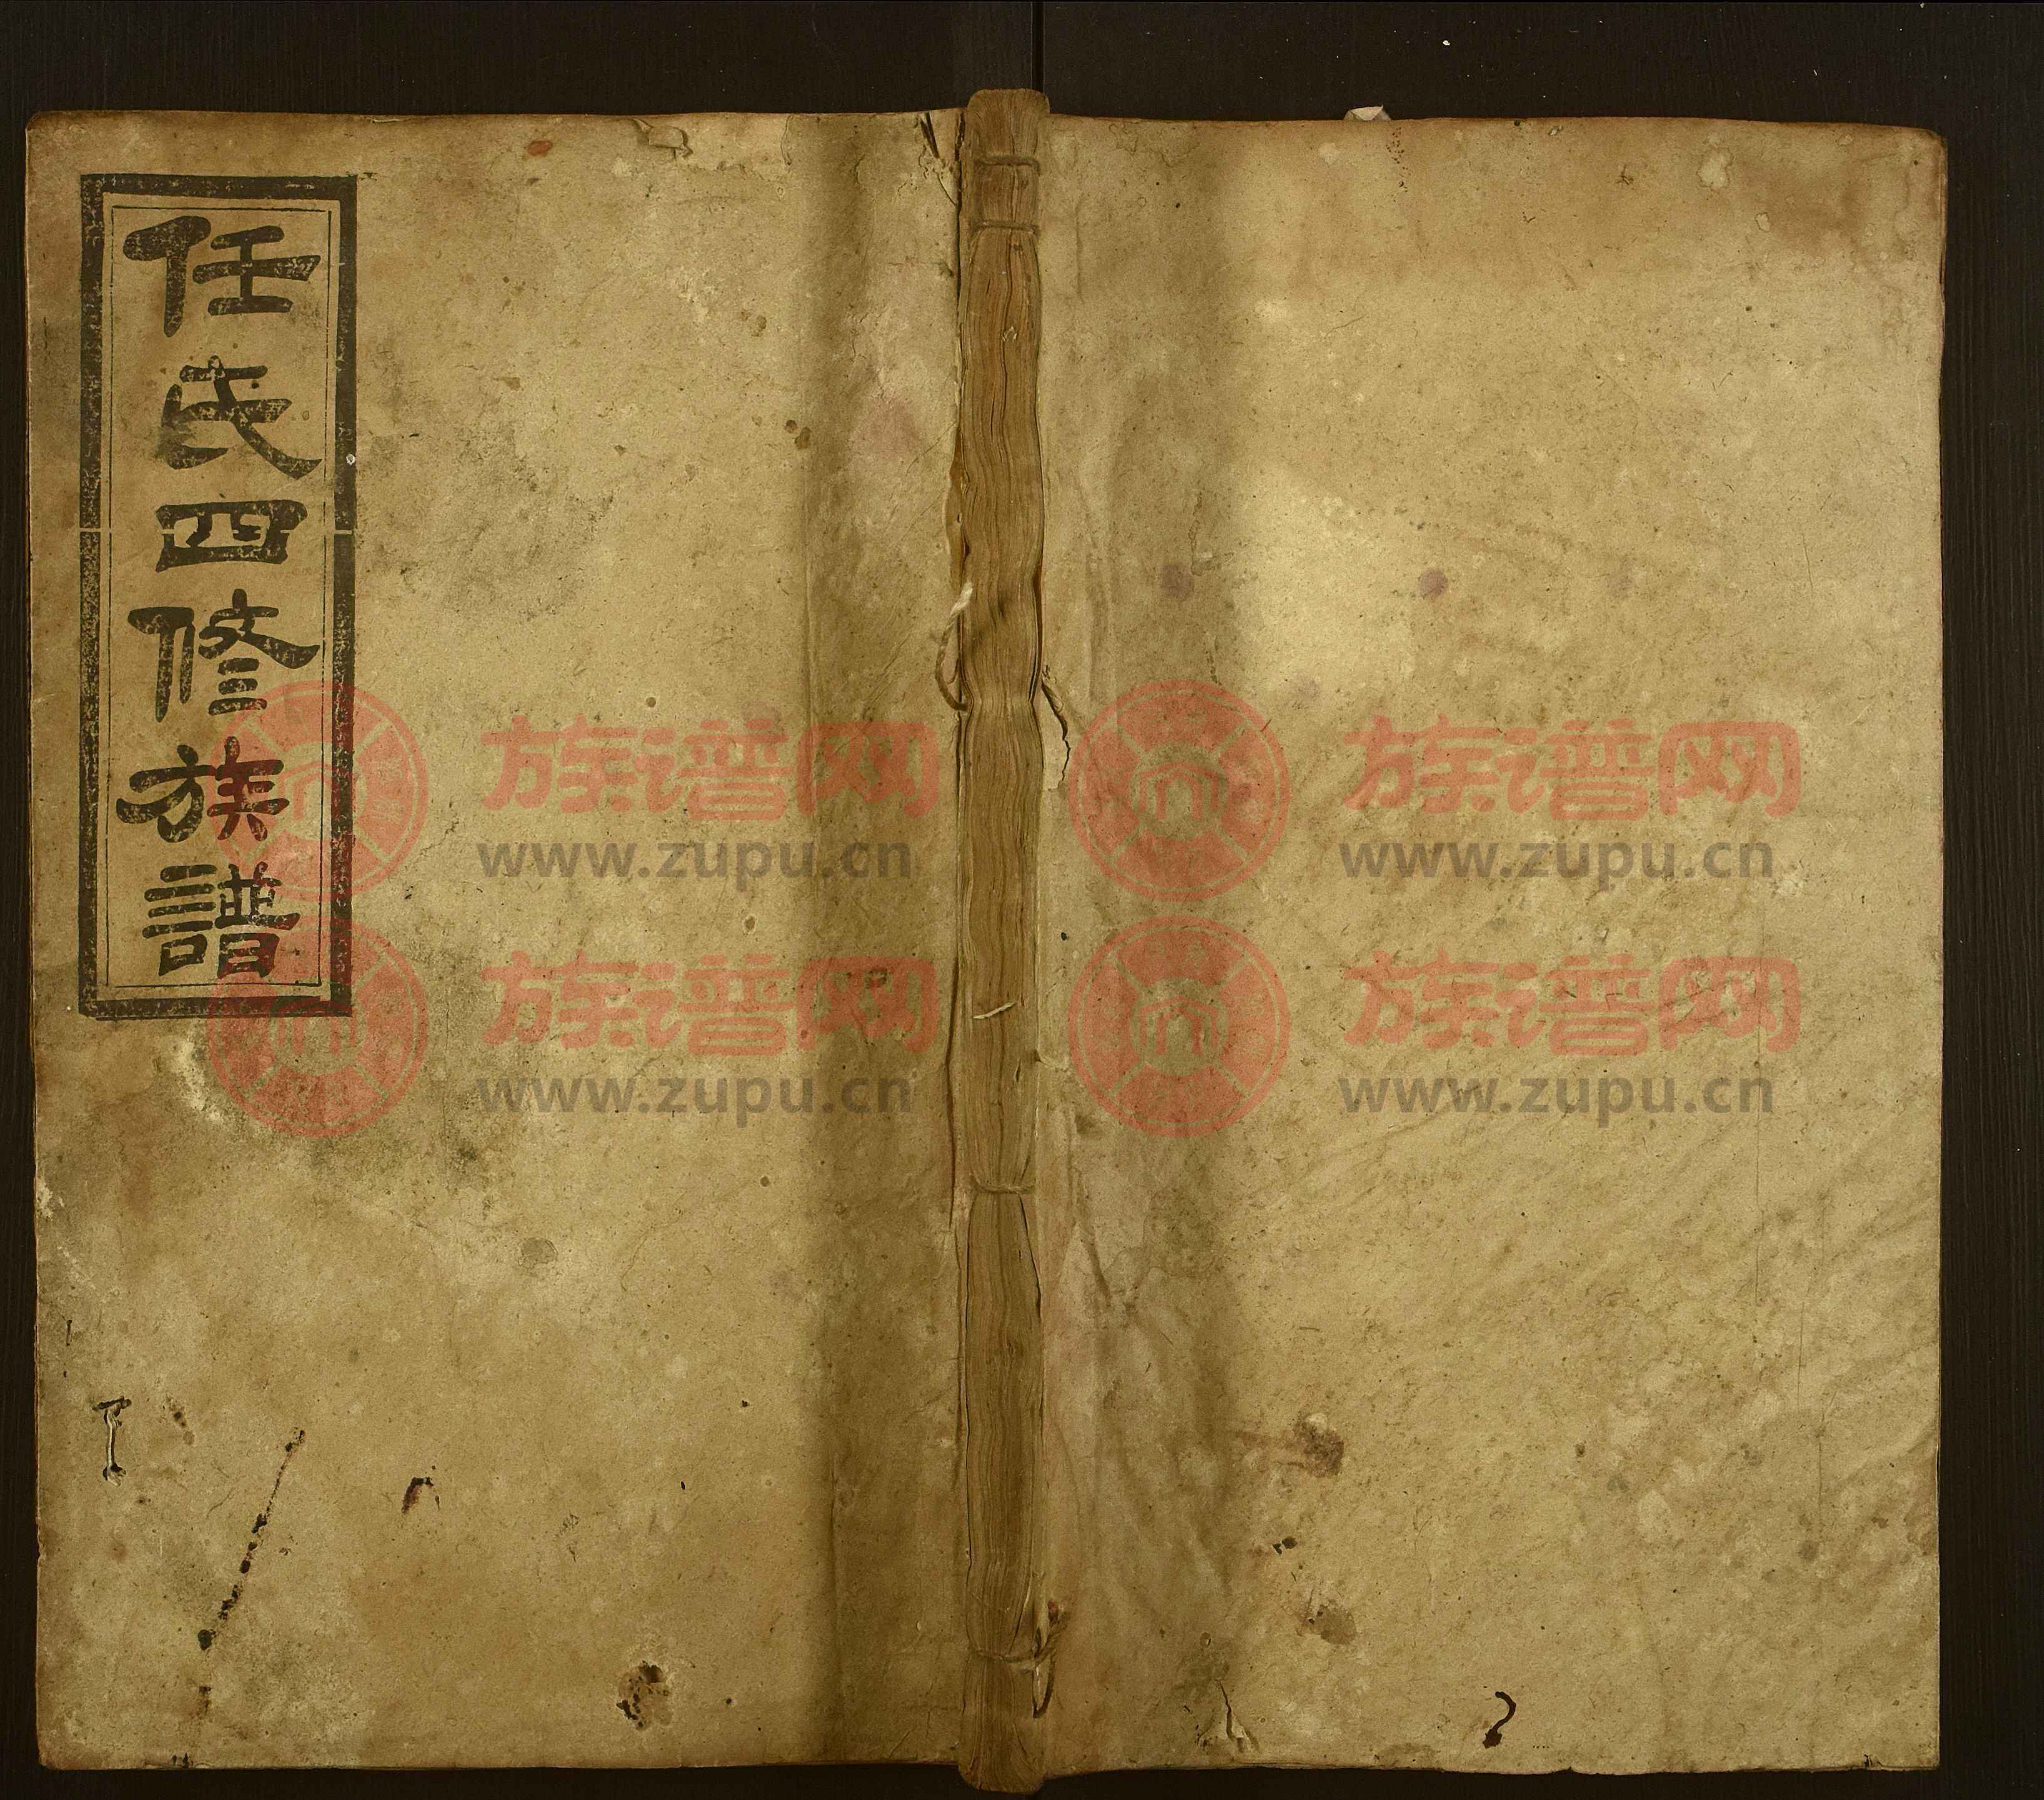 任氏四修族譜
族谱网 族谱网
www.zupu.cn www.zupu.cn
族谱网 族谱网
www.zupu.cn www.zupu.cn